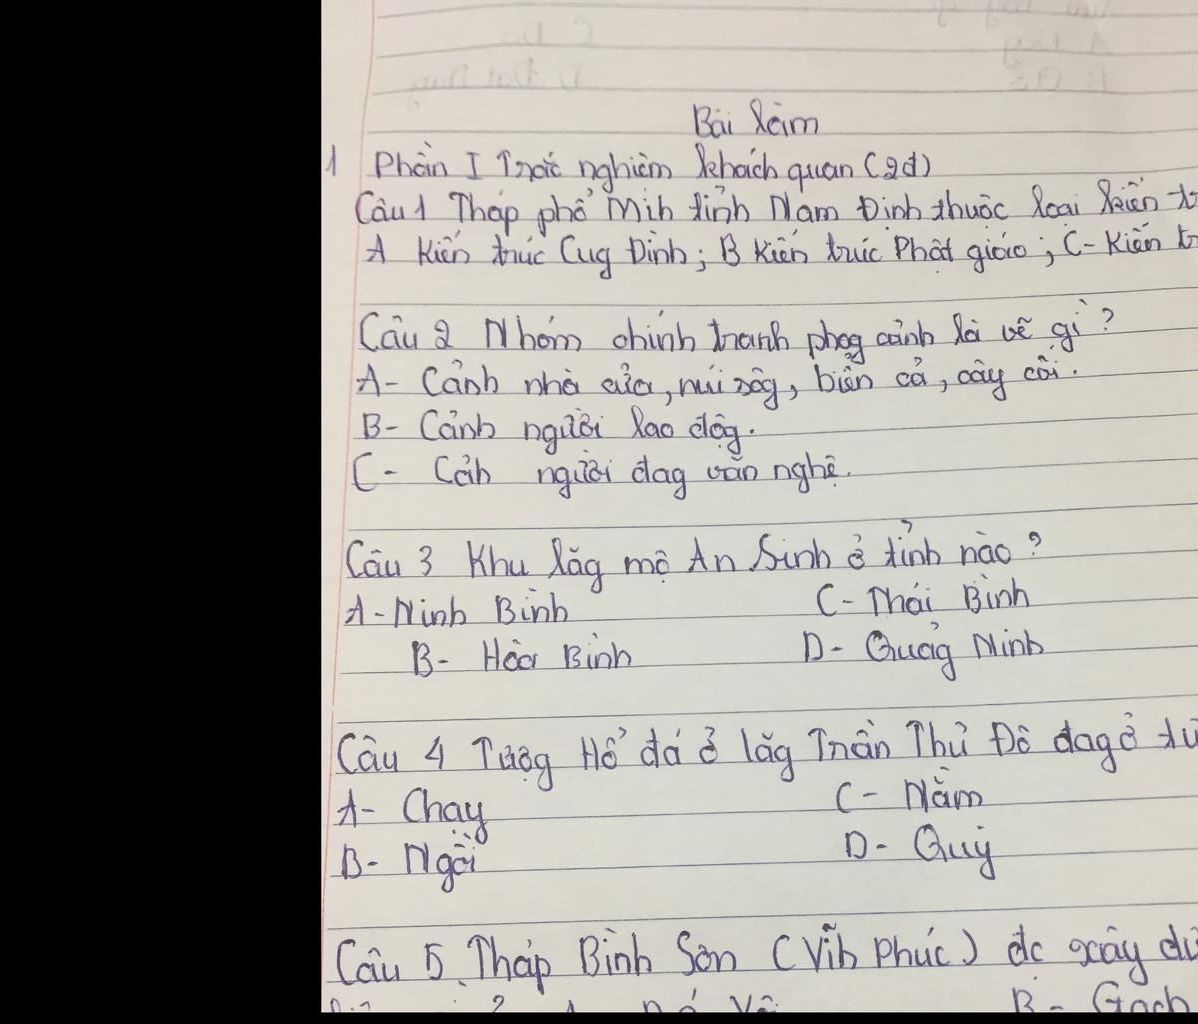 Bài làm
1 Phần I Trắc nghiệm khách quan (2đ)
Câu 1 Tháp phổ Mih tỉnh Nam Định thuộc loại kiến
A Kiến trúc Cug Đình; B Kiến trúc Phật giáo; C- Kiến
Câu 2 Nhóm chính tranh phog cảnh là vẽ gì?
A- Cảnh nhà cửa, núi sôg, biển cả, cây cối.
B- Cảnh người lao độg.
C- Cảh người đag văn nghệ.
Câu 3 Khu lăg mộ An Sinh ở tỉnh nào?
A- Ninh Bình C- Thái Bình
B- Hòa Bình D- Quảg Ninh
Câu 4 Tượg Hổ đá ở lăg Trần Thủ Độ đag ở
A- Chạy C- Nằm
B- Ngồi D- Quỳ
Câu 5 Tháp Bình Sơn (Vĩh Phúc) đc xây
B- Gạch